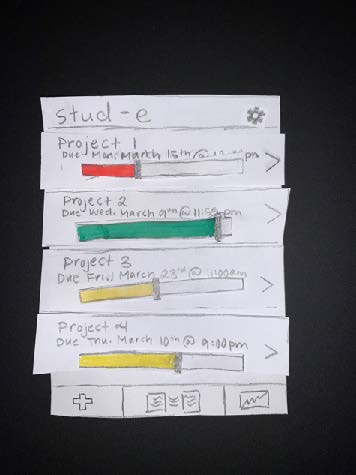 stud-e
Project 1
Due Mon. March 15th @ pm
Project 2
Due Wed. March 9th @ 11:59 pm
Project 3
Due Fri. March 23rd @
Project 4
Due Thu. March 10th @ 9:00pm